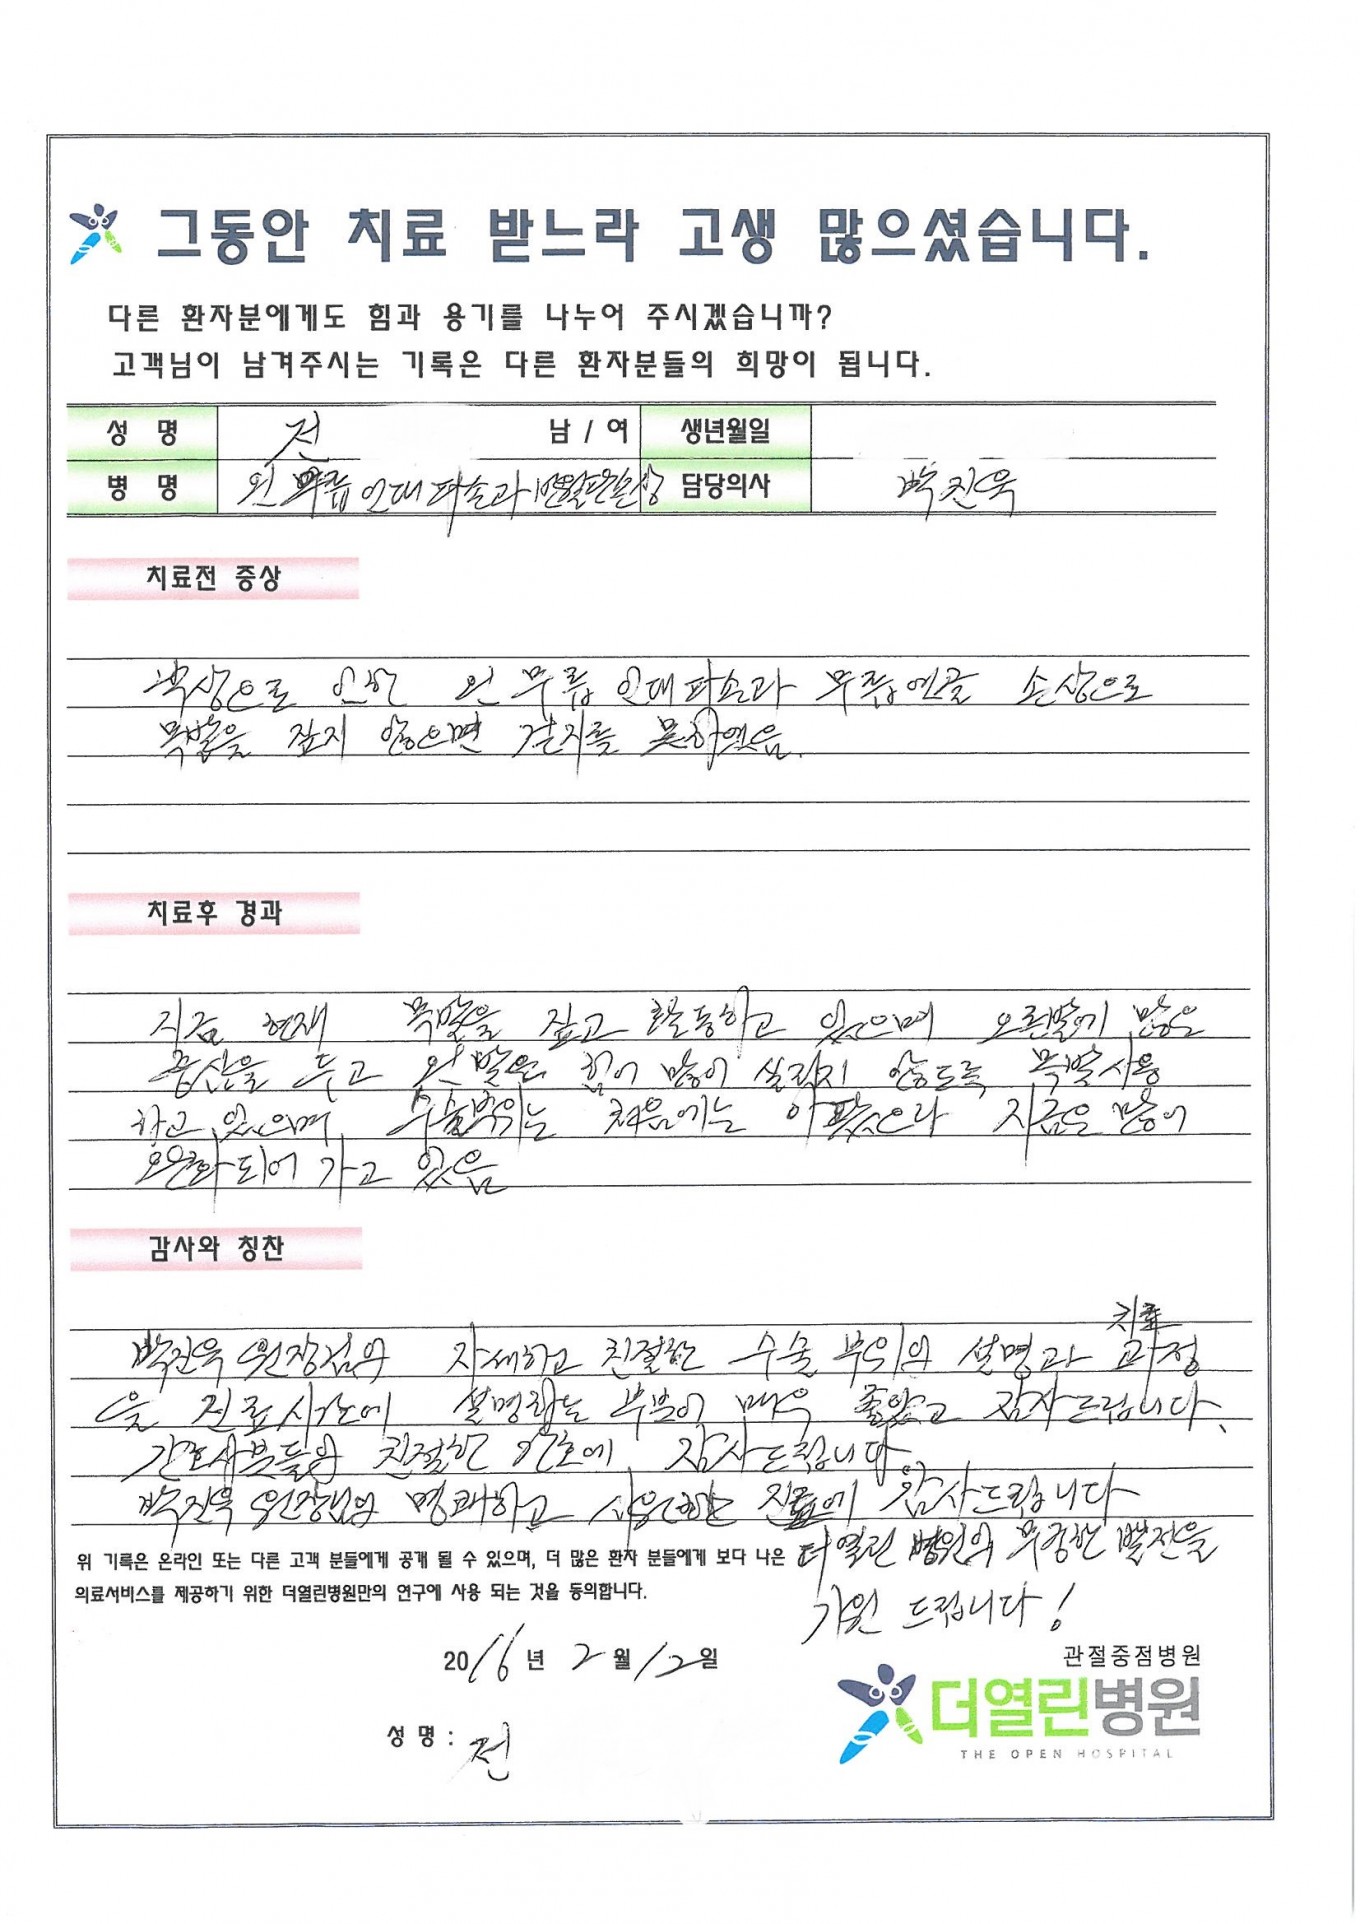 그동안 치료 받느라 고생 많으셨습니다.
다른 환자분에게도 힘과 용기를 나누어 주시겠습니까?
고객님이 남겨주시는 기록은 다른 환자분들의 희망이 됩니다.
성 명 전 남 / 여 생년월일
병 명 왼 무릎 인대파손과 반월판손상 담당의사 박진욱
치료전 증상
부상으로 인한 왼 무릎 인대파손과 무릎연골 손상으로
목발을 짚지 않으면 걷지를 못하였음.
치료후 경과
지금 현재 목발을 짚고 활동하고 있으며 오른발에 많은
중심을 두고 왼발은 힘이 많이 실리지 않도록 목발사용
하고 있으며, 수술부위는 처음에는 아팠으나 지금은 많이
완화되어 가고 있음
감사와 칭찬
치료
박진욱 원장님의 자세하고 친절한 수술 부위의 설명과 과정
을 진료시간에 설명하는 부분이 매우 좋았고 감사드립니다.
간호사분들의 친절한 간호에 감사드립니다
박진욱 원장님의 명쾌하고 시원한 진료에 감사드립니다
더열린 병원의 무궁한 발전을
기원 드립니다!
위 기록은 온라인 또는 다른 고객 분들에게 공개 될 수 있으며, 더 많은 환자 분들에게 보다 나은
의료서비스를 제공하기 위한 더열린병원만의 연구에 사용 되는 것을 동의합니다.
2016년 2월 12일
성 명 : 전
관절중점병원
더열린병원
THE OPEN HOSPITAL